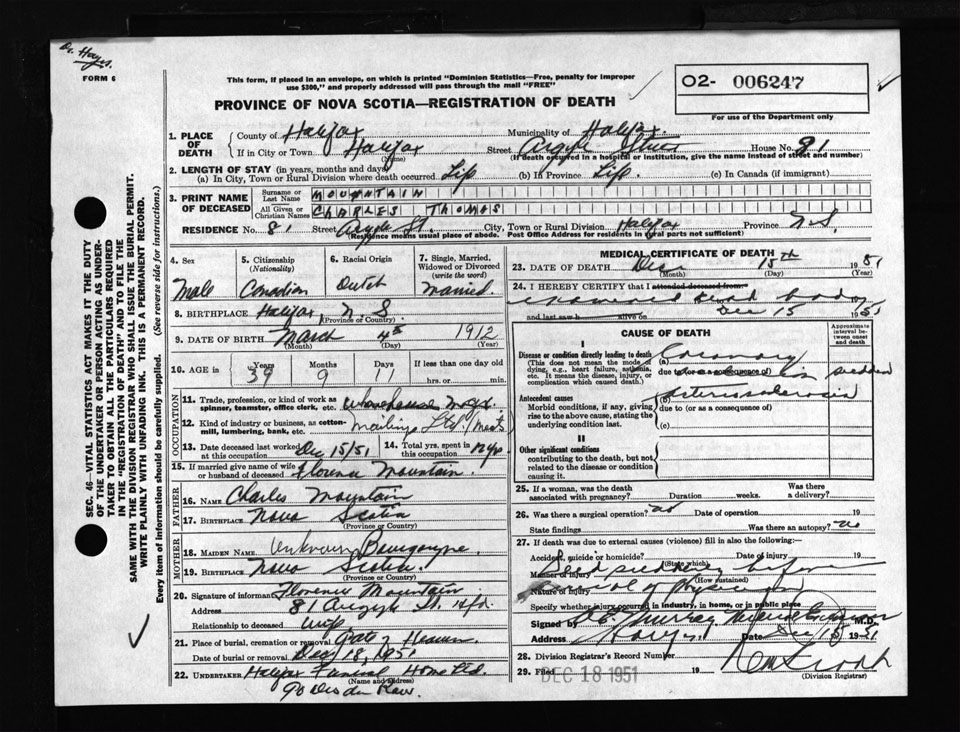 Dr. Hayes.
FORM 6
This form, if placed in an envelope, on which is printed "Dominion Statistics—Free, penalty for improper
use $300," and properly addressed will pass through the mail "FREE"
O2- 006247
For use of the Department only
PROVINCE OF NOVA SCOTIA—REGISTRATION OF DEATH
1. PLACE OF DEATH
County of Halifax Municipality of Halifax.
If in City or Town Halifax Street Argyle Street House No. 81
(Name) (If death occurred in a hospital or institution, give the name instead of street and number)
2. LENGTH OF STAY (in years, months and days)
(a) In City, Town or Rural Division where death occurred. Life (b) In Province Life. (c) In Canada (if immigrant)
3. PRINT NAME OF DECEASED
Surname or Last Name MOUNTAIN
All Given or Christian Names CHARLES THOMAS
RESIDENCE No. 81 Street Argyle St. City, Town or Rural Division Halifax Province N.S.
(Residence means usual place of abode. Post Office Address for residents in rural parts not sufficient)
4. Sex Male
5. Citizenship (Nationality) Canadian
6. Racial Origin Dutch
7. Single, Married, Widowed or Divorced (write the word) Married
8. BIRTHPLACE Halifax, N.S.
(Province or Country)
9. DATE OF BIRTH March 4th 1912
(Month) (Day) (Year)
10. AGE in Years 39 Months 9 Days 11 If less than one day old hrs. or min.
OCCUPATION
11. Trade, profession, or kind of work as spinner, teamster, office clerk, etc. warehouse
12. Kind of industry or business, as cotton-mill, lumbering, bank, etc. Ltd. Meats
13. Date deceased last worked at this occupation Dec 15/51
14. Total yrs. spent in this occupation
15. If married give name of wife or husband of deceased Florence Mountain.
FATHER
16. NAME Charles Mountain
17. BIRTHPLACE Nova Scotia
(Province or Country)
MOTHER
18. MAIDEN NAME Unknown Bourgoyne.
19. BIRTHPLACE Nova Scotia.
(Province or Country)
20. Signature of informant Florence Mountain
Address 81 Argyle St. Hfx.
Relationship to deceased wife
21. Place of burial, cremation or removal Gate of Heaven
Date of burial or removal Dec 18, 1951
22. UNDERTAKER Halifax Funeral Home Ltd.
(Name and Address)
MEDICAL CERTIFICATE OF DEATH
23. DATE OF DEATH Dec 15TH 1951
(Month) (Day) (Year)
24. I HEREBY CERTIFY that I attended deceased from:
examined dead body
and last saw h alive on Dec 15 1951
CAUSE OF DEATH
Approximate interval between onset and death
I
Disease or condition directly leading to death
(This does not mean the mode of dying, e.g., heart failure, asthenia, etc. It means the disease, injury, or complication which caused death.)
(a) Coronary
due to (or as a consequence of) sudden
Antecedent causes
Morbid conditions, if any, giving rise to the above cause, stating the underlying condition last.
(b) Arteriosclerosis
due to (or as a consequence of)
(c)
II
Other significant conditions
contributing to the death, but not related to the disease or condition causing it.
25. If a woman, was the death associated with pregnancy? Duration weeks. Was there a delivery?
26. Was there a surgical operation? no Date of operation 19
State findings Was there an autopsy? no
27. If death was due to external causes (violence) fill in also the following:
Accident, suicide or homicide? (State which) Date of injury 19
Manner of injury Died suddenly before
(How sustained)
Nature of injury arrival of physician
Specify whether injury occurred in industry, in home, or in public place
Signed by Murray M.D.
Address Date Dec 15 1951
28. Division Registrar's Record Number
29. Filed DEC 18 1951 19
(Division Registrar)
SEC. 46—VITAL STATISTICS ACT MAKES IT THE DUTY
OF THE UNDERTAKER OR PERSON ACTING AS UNDER-
TAKER TO OBTAIN ALL THE PARTICULARS REQUIRED
IN THE "REGISTRATION OF DEATH" AND TO FILE THE
SAME WITH THE DIVISION REGISTRAR WHO SHALL ISSUE THE BURIAL PERMIT.
WRITE PLAINLY WITH UNFADING INK. THIS IS A PERMANENT RECORD.
Every item of information should be carefully supplied. (See reverse side for instructions.)